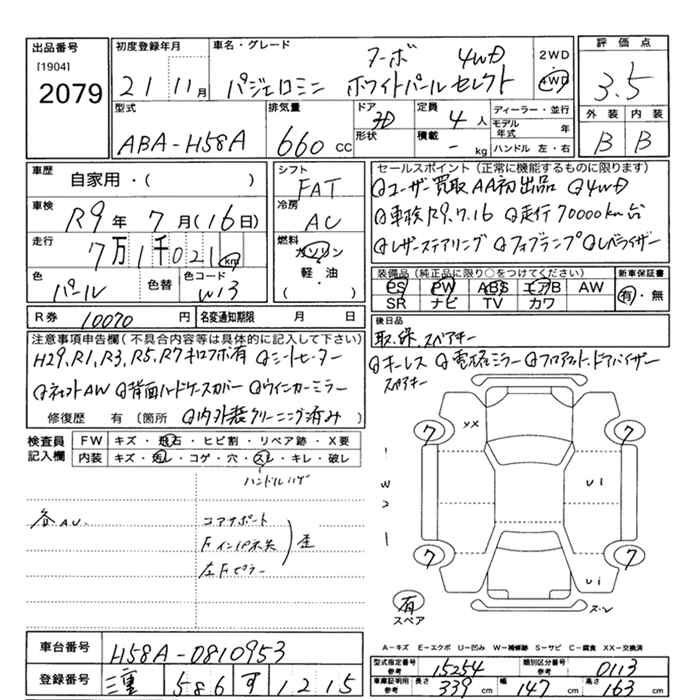 出品番号
[1904]
2079
初度登録年月
21 11月
車名・グレード
ターボ 4WD
パジェロミニ ホワイトパールセレクト
2WD
4WD
評価点
3.5
外装 内装
B B
型式
ABA-H58A
排気量
660 cc
ドア
3D
形状
定員
4 人
積載
- kg
ディーラー・並行
モデル年式 年
ハンドル 左・右
車歴
自家用・( )
車検
R9年 7月(16日)
走行
7万1千021 km
色
パール
色替
色コード
W13
シフト
FAT
冷房
AC
燃料
ガソリン
軽・油
( )
セールスポイント(正常に機能するものに限ります)
◎ユーザー買取AA初出品 ◎4WD
◎車検R9.7.16 ◎走行70000km台
◎レザーステアリング ◎フォグランプ ◎レベライザー
装備品(純正品に限り○をつけてください)
PS PW ABS エアB AW
SR ナビ TV カワ
新車保証書
有・無
R券 10070 円
名変通知期限 月 日
後日品
取、保、スペアキー
注意事項申告欄(不具合内容等は具体的に記入して下さい)
H29,R1,R3,R5,R7キロフボ有 ◎シートヒーター
◎社外AW ◎背面ハードケースカバー ◎ウインカーミラー
修復歴 有 [箇所 ◎内外装クリーニング済み)
◎キーレス ◎電格ミラー ◎フロアマット、ドアバイザー
スペアキー
検査員記入欄
FW キズ・飛石・ヒビ割・リペア跡・X要
内装 キズ・汚レ・コゲ・穴・スレ・キレ・破レ
ハンドルハゲ
各AU.
コアサポート
Fインパネ夫
左Fピラー
歪
7 7
XX
U1
W2
7 7
U1
有
スペア
スレ
A-キズ E-エクボ U-凹み W-補修跡 S-サビ C-腐食 XX-交換済
車台番号
H58A-0810953
登録番号
三重 586 す 1215
型式指定番号 参考
15254
類別区分番号 参考
0113
車庫証明用 参考
長さ 339 cm
幅 147 cm
高さ 163 cm